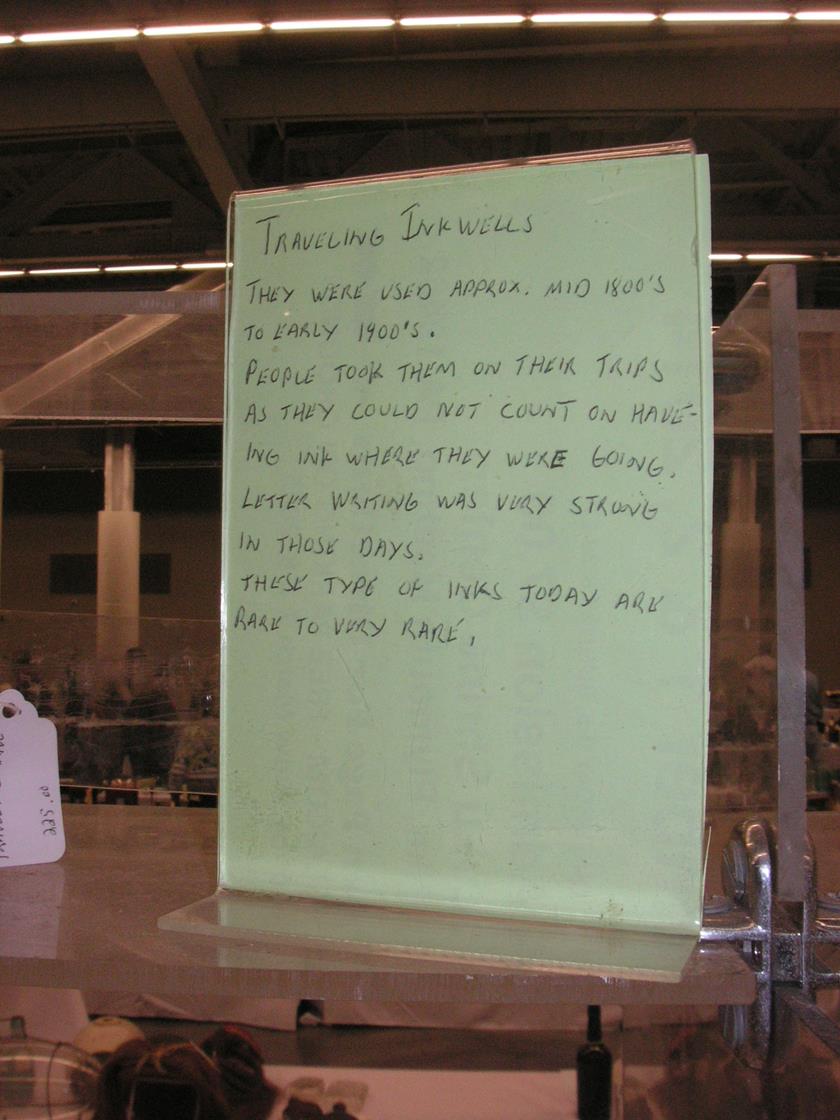 TRAVELING INKWELLS
THEY WERE USED APPROX. MID 1800'S
TO EARLY 1900'S.
PEOPLE TOOK THEM ON THEIR TRIPS
AS THEY COULD NOT COUNT ON HAVE-
ING INK WHERE THEY WERE GOING.
LETTER WRITING WAS VERY STRONG
IN THOSE DAYS.
THESE TYPE OF INKS TODAY ARE
RARE TO VERY RARE.